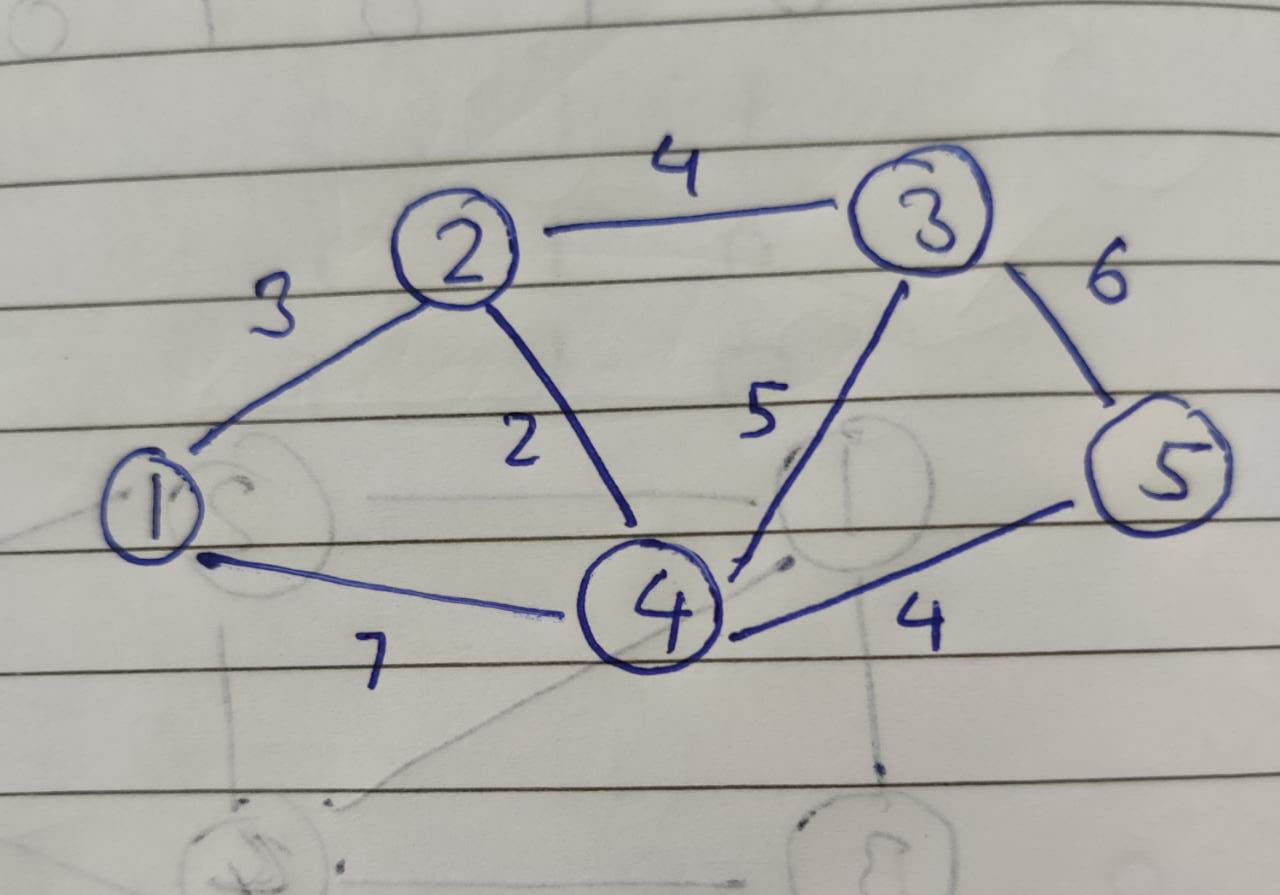 4
2 3
3 6
2 5
1 5
4 4
7